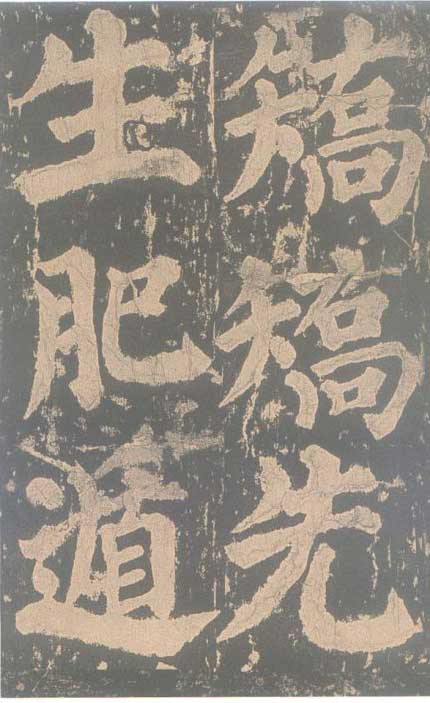 矯矯先
生肥遁